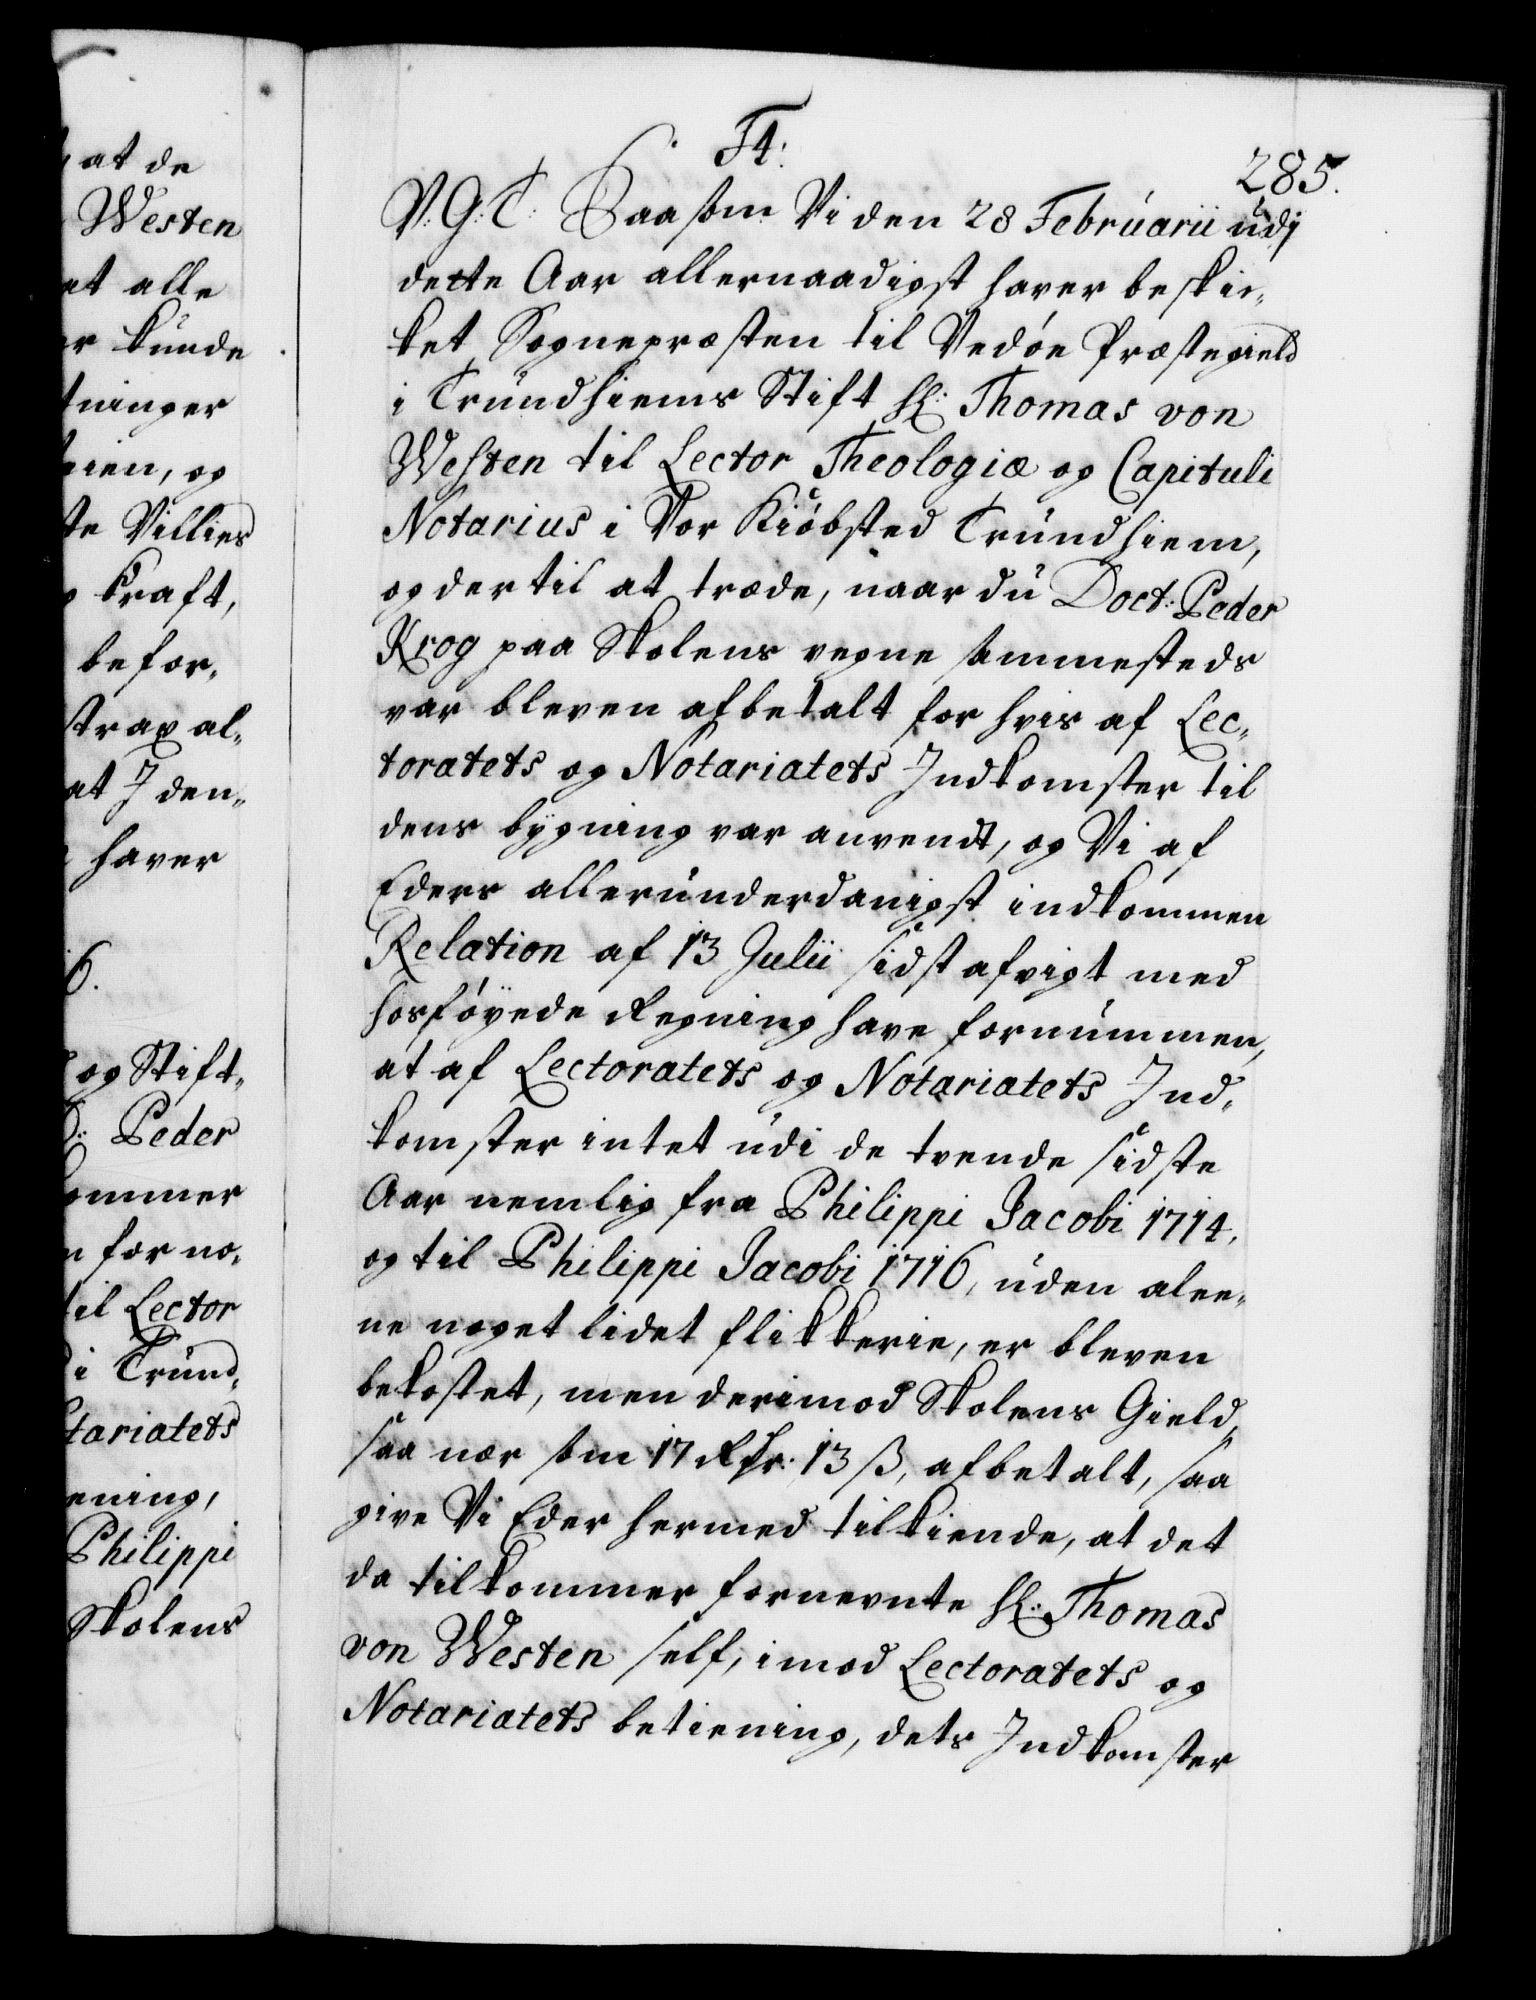 at de
Westen
at alle
er kunde
tninger
eien, og
te Villies
kraft,
befor„
strax al„
at I den„
haver
6.
og Stift„
D: Peder
kommer
n for no„
til Lector
i Trund„
tariatets
ening,
Philippi
Skolens
F4:
285.
V: G: T: Saasom Vi den 28 Februarii udj
dette Aar allernaadigst haver beskic„
ket Sognepræsten til Vedøe Præstegield
i Trundhiems Stift H: Thomas von
Westen til Lector Theologiæ og Capituli
Notarius i Vor Kiøbsted Trundhiem,
og dertil at træde, naar du Doct: Peder
Krog paa Skolens vegne sammesteds
var bleven afbetalt for hvis af Lec„
toratets og Notariatets Indkomster til
dens bygning var anvendt, og Vi af
Eders allerunderdanigst indkommen
Relation af 13 Julii sidst afvigt med
hosføyede Regning have fornummen,
at af Lectoratets og Notariatets Ind„
komster intet udi de tvende sidste
Aar nemlig fra Philippi Jacobi 1714,
og til Philippi Jacobi 1716, uden alee„
ne noget lidet flikkerie, er bleven
bekostet, men derimod Skolens Gield,
saa nær som 17 Rdr. 13 ß, afbetalt, saa
give Vi Eder hermed tilkiende, at det
da tilkommer fornevnte H: Thomas
von Westen self, imod Lectoratets og
Notariatets betiening, dets Indkomster